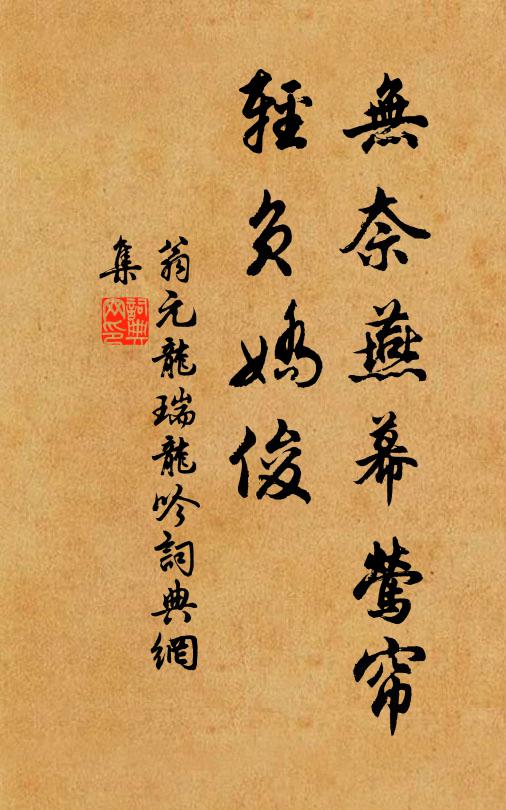 無奈燕幕鶯帘
輕負嬌俊
翁元龍瑞龍吟詞典網
集
詞典
網印